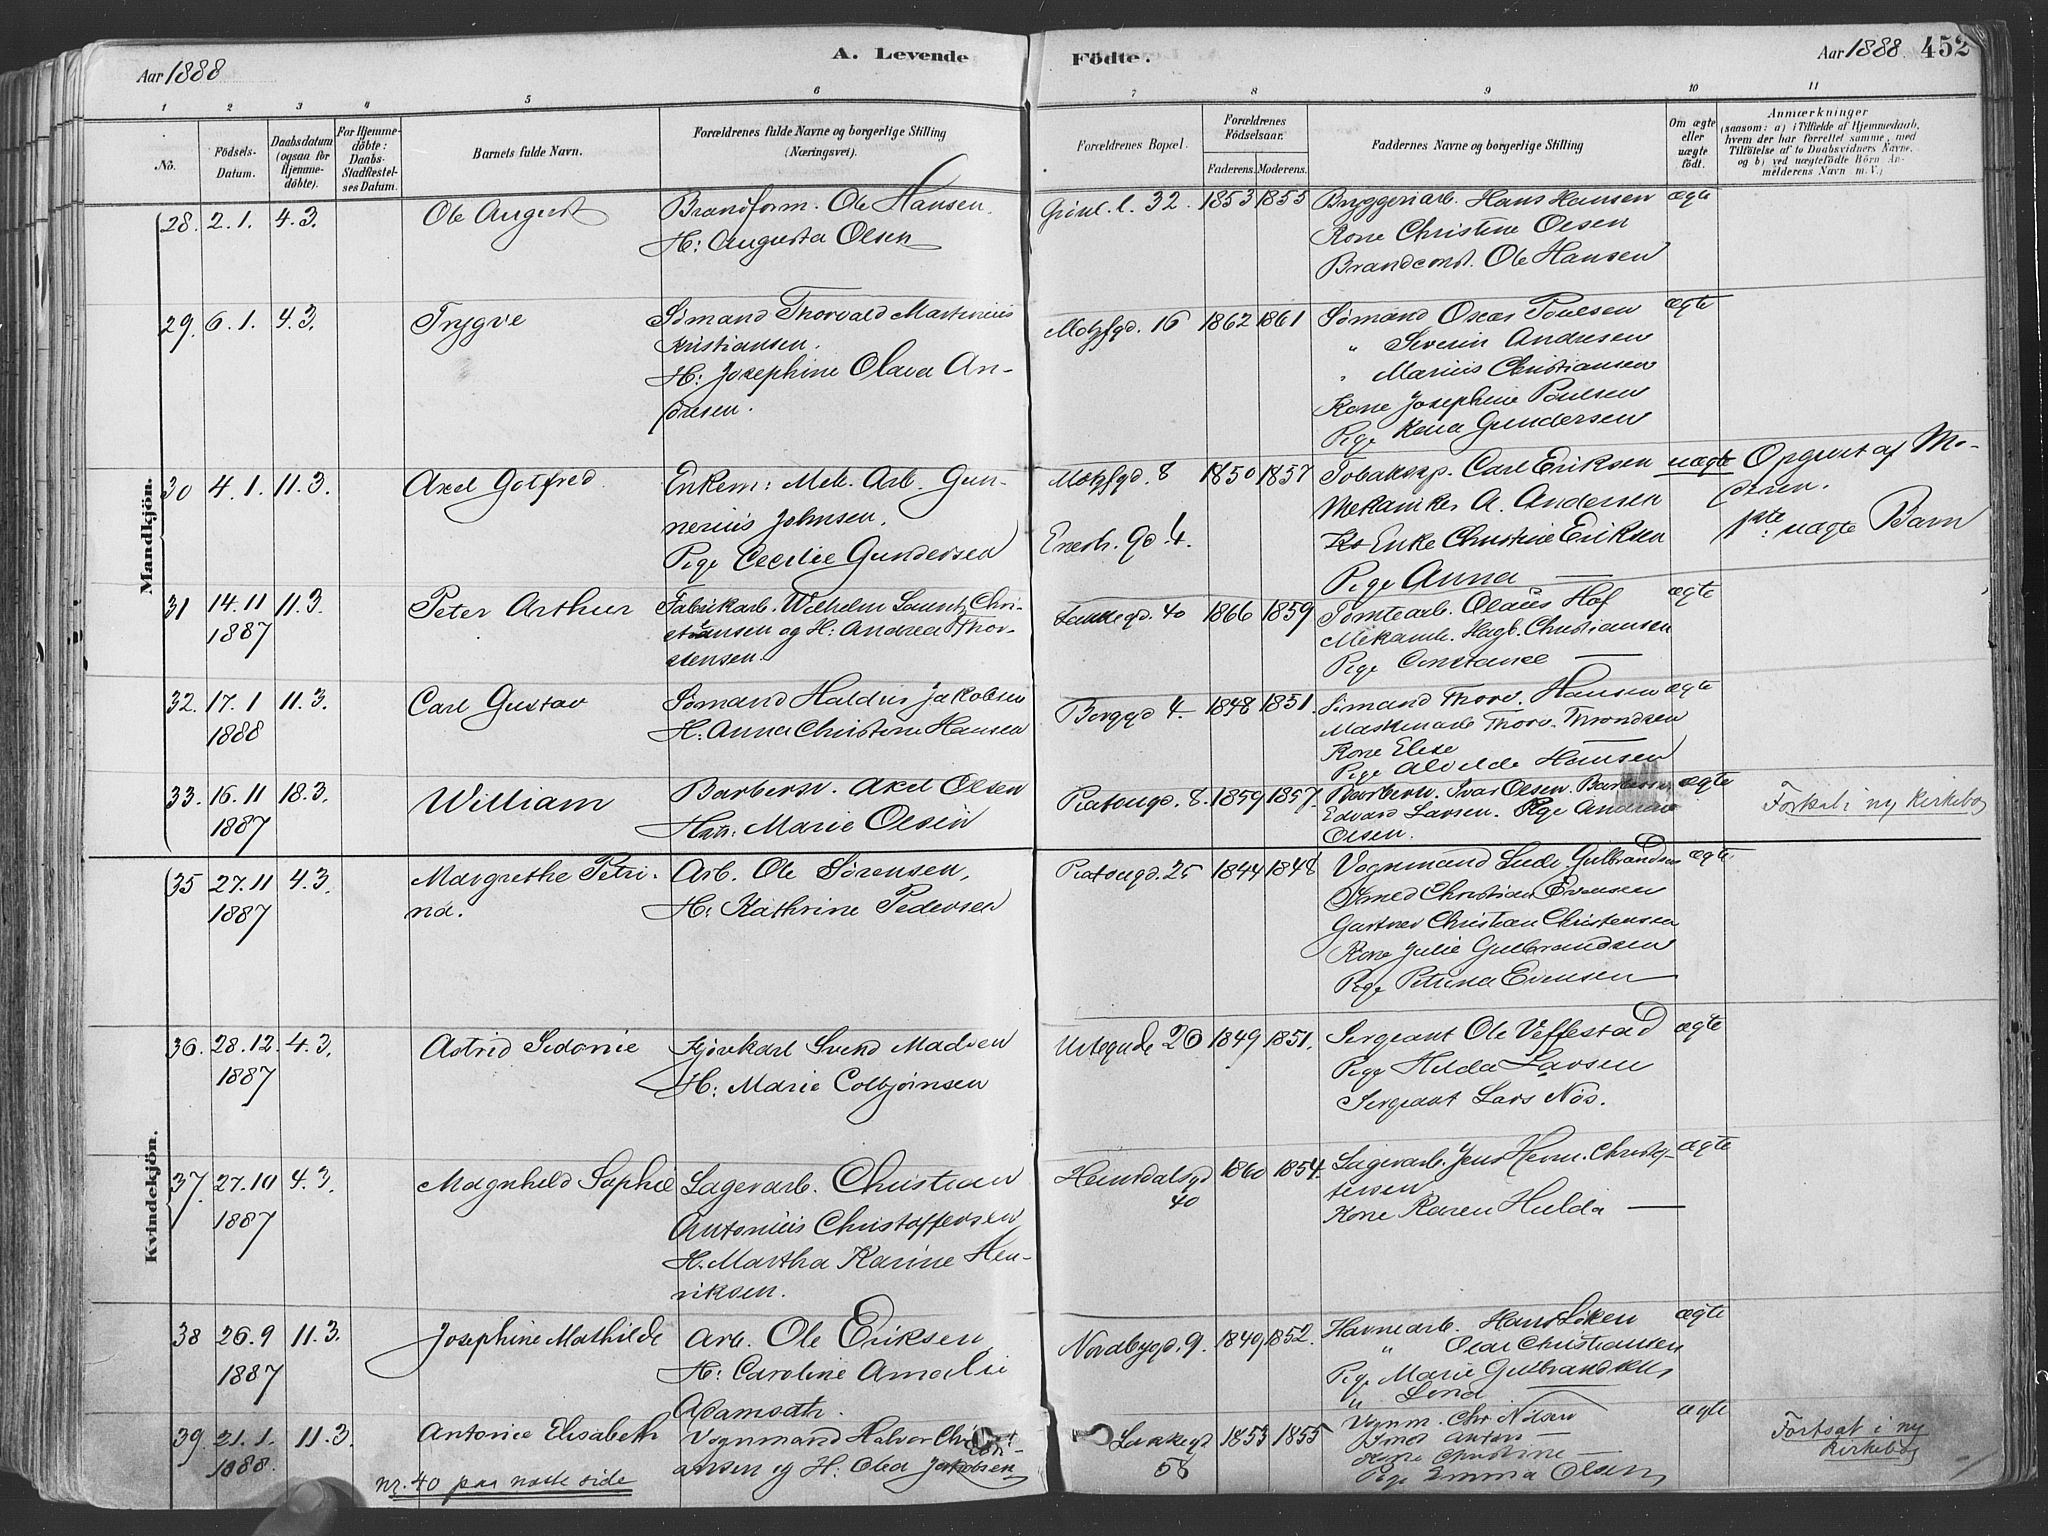 Aar 1888
A. Levende
Födte.
Aar 1888. 452
1 2 3 4 5 6 7 8 9 10 11
No.
Födsels-Datum.
Daabsdatum (ogsaa for Hjemmedöbte).
For Hjemmedöbte: Daabs-Stadfestelses Datum.
Barnets fulde Navn.
Forældrenes fulde Navne og borgerlige Stilling (Næringsvei).
Forældrenes Bopæl.
Forældrenes Födselsaar.
Faderens. Moderens.
Faddernes Navne og borgerlige Stilling
Om ægte eller uægte födt.
Anmærkninger
(saasom: a) i Tilfælde af Hjemmedaab,
hvem der har forrettet samme, med
Tilföielse af to Daabsvidners Navne,
og b) ved uægtefödte Börn An-
melderens Navn m. V.)
Mandkjön.
28. 2.1. 4.3. Ole August
Brandform. Ole Hansen.
H: Augusta Olsen
Grönl. l. 32. 1853 1855
Bryggeriarb. Hans Hansen
Kone Christine Olsen
Brandconst. Ole Hansen
ægte
29. 6.1. 4.3. Trygve
Sömand Thorvald Martinius
Kristiansen.
H: Josephine Olava An-
dresen.
Motzfgd. 16 1862 1861
Sömand Oscar Poulsen
" Severin Andresen
" Marius Christiansen
Kone Josephine Poulsen
Pige Gundersen
ægte
30 4.1. 11.3. Axel Gotfred
Enkem: Mek. Arb. Gun-
nerius Johnsen.
Pige Cecilie Gundersen
Motzfgd. 8 1850 1857
Enerh. gd. 4.
Tobaksp. Carl Eriksen
Mekaniker A. Andersen
Enke Christine Eriksen
Pige Anna —
uægte
Opgivet af Mo-
deren.
1ste uægte Barn
31 14.11 1887 11.3 Peter Arthur
Fabrikarb. Wilhelm Chri-
stiansen og H: Andrea Thor-
stensen.
Lakkegd. 40 1866 1859
Tomtearb. Olaus Hof
Mekanik. Hagb. Christiansen
Pige Constance —
ægte
32. 17.1 1888 11.3. Carl Gustav
Sömand Haldus Jakobsen
H: Anna Christine Hansen
Borggd 4. 1848 1851.
Sömand Thorv. Hansen
Maskinarb Thorv. Throndsen
Kone Elise —
Pige Alvilde Hansen
ægte
33. 16.11 1887 18.3. William
Barbersv. Axel Olsen
H: Marie Olsen
Platougd. 8. 1859 1857.
Barbersv. Ivar Olsen. Barbersv.
Edvard Larsen. Pige Andrea
Olsen.
ægte
Forts. i ny kirkebog
Kvindekjön.
35 27.11 1887 4.3. Margrethe Petri-
na.
Arb. Ole Sörensen,
H: Kathrine Pedersen
Platougd. 25 1844 1848
Vognmand Lude Gulbrandsen
Smed Christian Evensen
Gartner Christian Christensen
Kone Julie Gulbrandsen
Pige Petrina Evensen
ægte
36. 28.12. 1887 4.3. Astrid Sidonie
Kjörekarl Svend Madsen
H: Marie Colbjörnsen
Urtegade 20 1849 1851.
Sergeant Ole Veffestad
Pige Hilda Larsen
Sergeant Lars Nös.
ægte
37. 27.10 1887 4.3. Magnhild Sophie
Lagerarb. Christian
Antonius Christoffersen
H. Martha Karine Hen-
riksen.
Heimdalsgd 40 1860 1854.
Lagerarb. Jens Herm. Christof-
fersen
Kone Karen Hulda —
ægte
38 26.9 1887 11.3. Josephine Mathilde
Arb. Ole Eriksen
H: Caroline Amalie
Adamsdtr.
Nordbygd. 9. 1849 1852.
Havnearb. Hans Löken
" Olar Christiansen
Pige Marie Gulbrandsen
" Lina —
ægte
39. 21.1. 1888. 11.3. Antonie Elisabeth
Vognmand Halvor Christi-
ansen og H: Olea Jakobsen
Lakkegd 58 1853 1855
Vognm. Chr Nilsen
Smed Anton —
Kone Christine —
Pige Emma Olsen
ægte
Fortsat i ny
Kirkebog
nr. 40 paa næste side